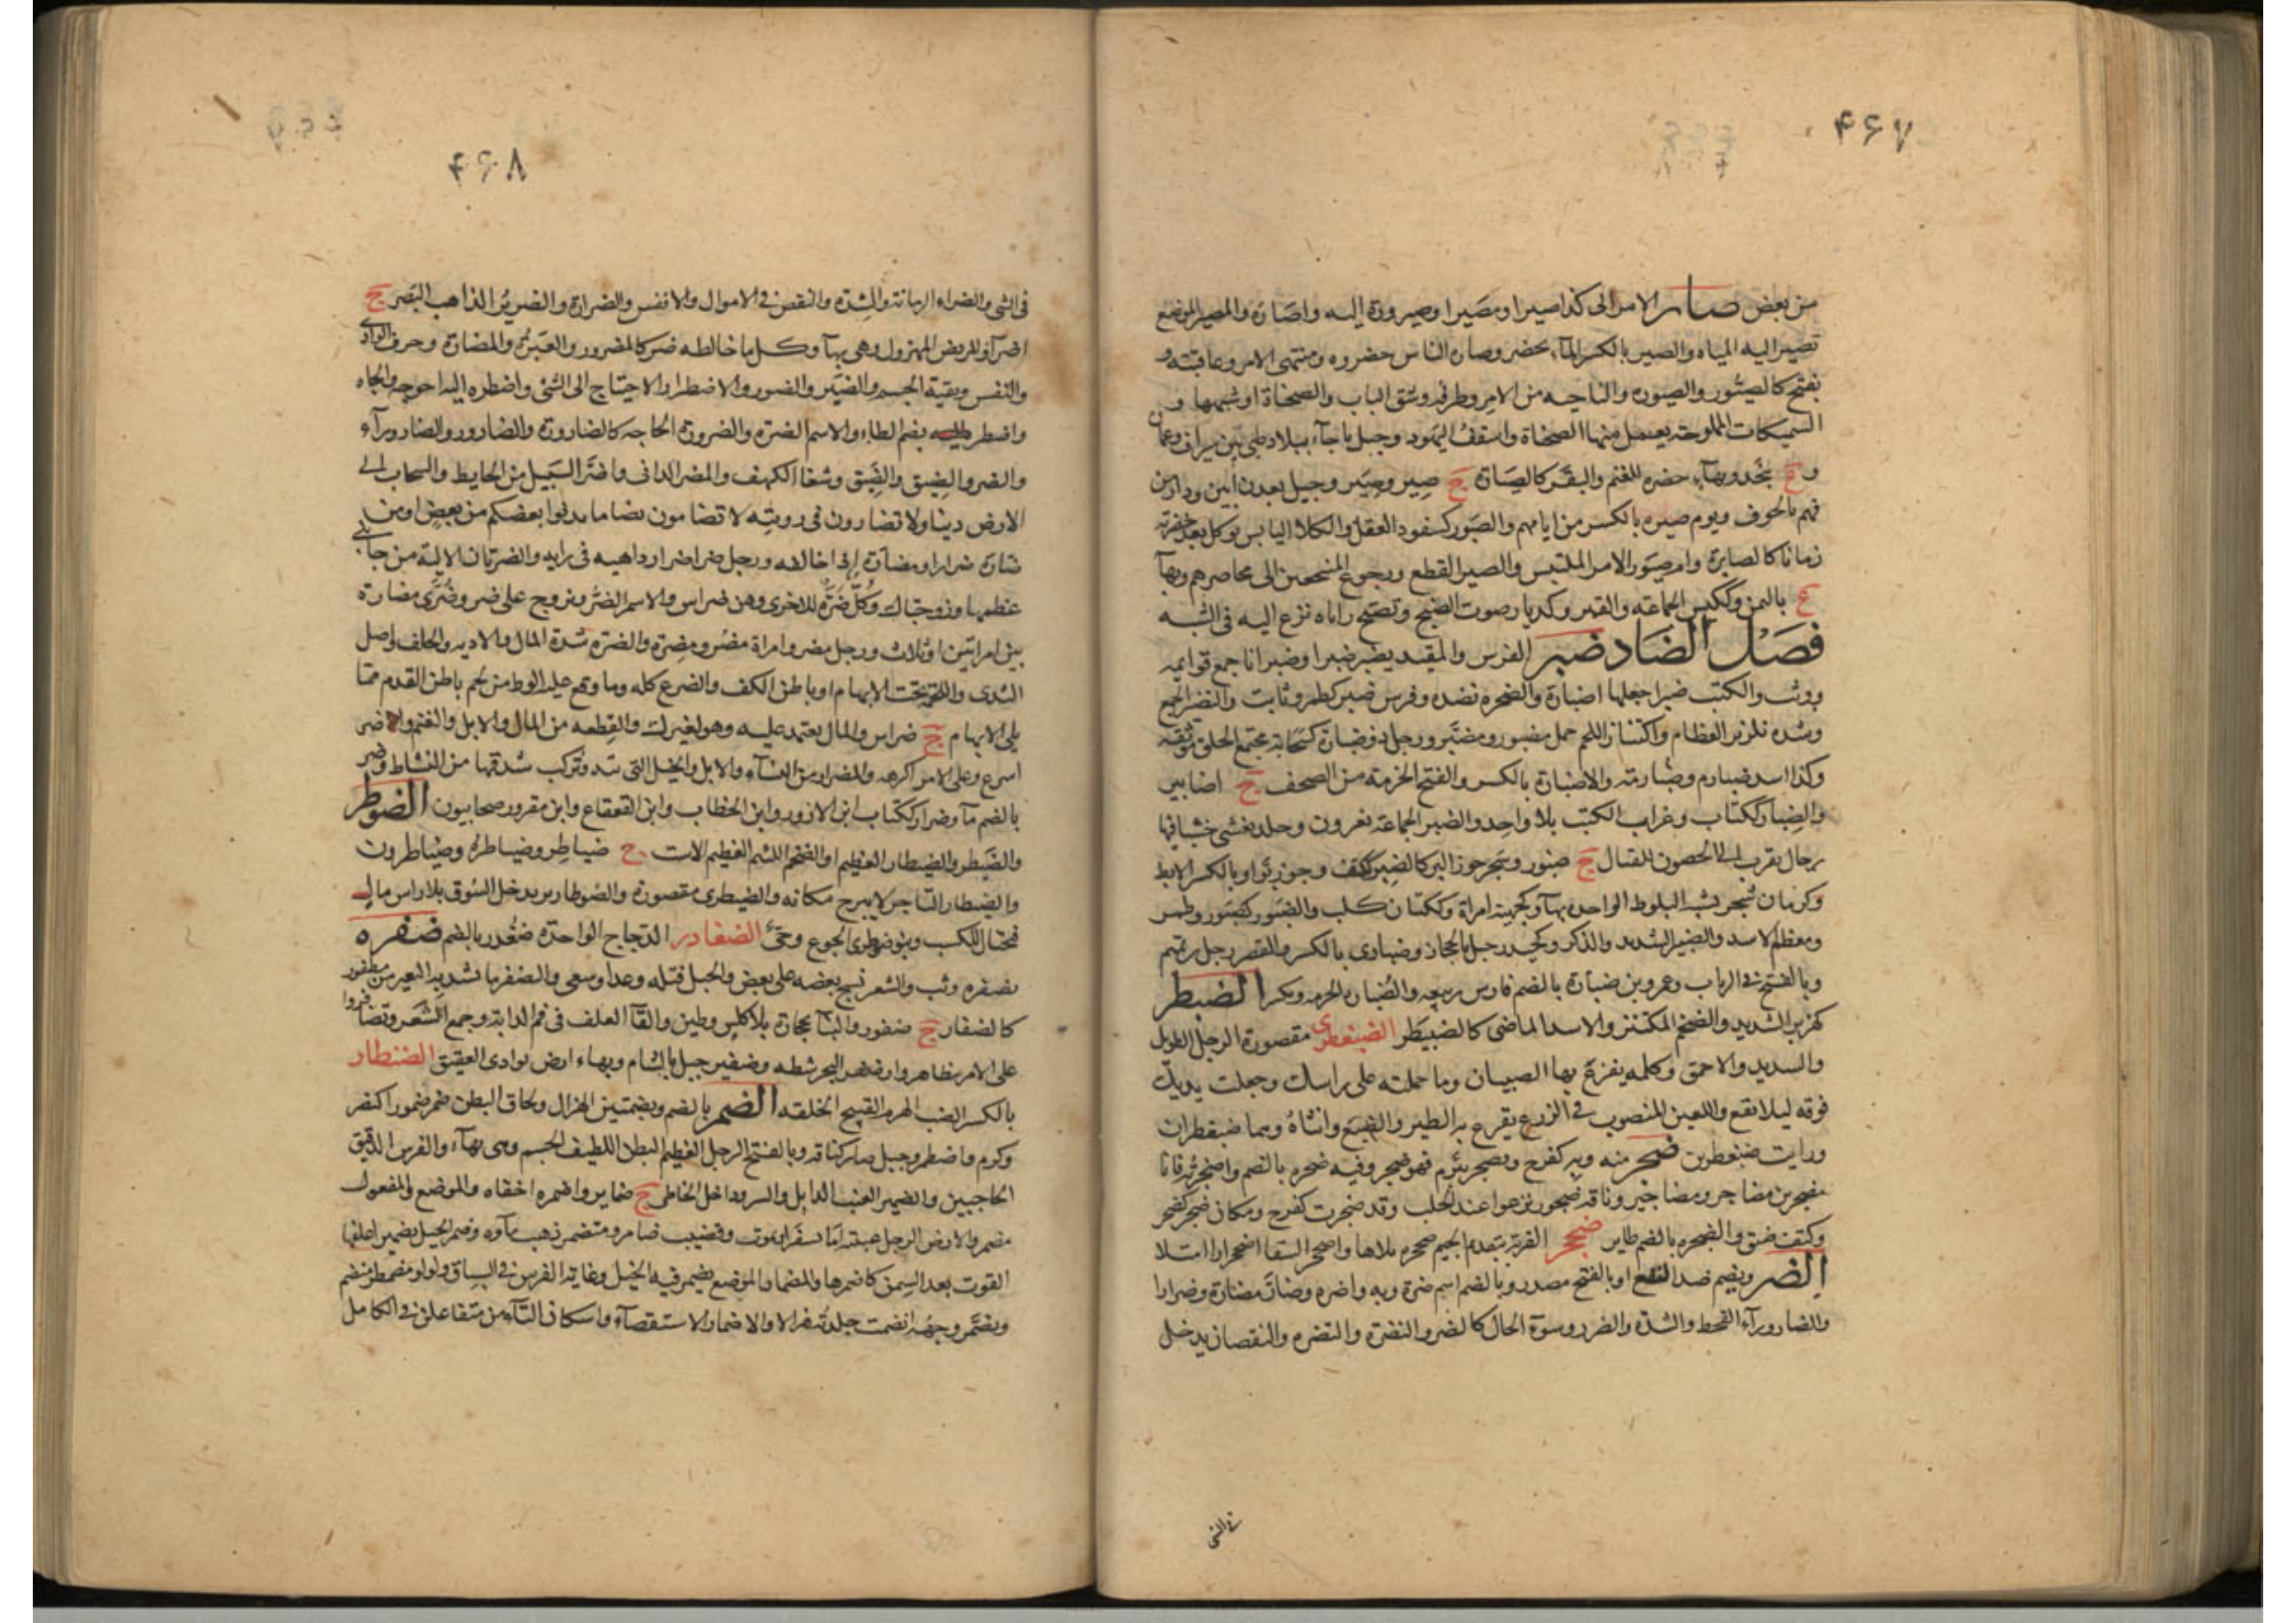 ۴۶۷
من بعض صار الامر الى كذا صيرا ومصيرا وصيرورة اليه واصاره والمصير الموضع
تصير اليه المياه والصير بالكسر الماء يحضر وصار الناس حضروه ومنتهى الامر وعاقبته و
يفتح كالصيور والصيوره والناحيه من الامر وطرفه وشق الباب والصحناة او شبهها و
السميكات المملوحة يعمل منها الصحناة واسقف اليهود وجبل باجاء ببلاد طي بين سيراف وعمان
و ع بنجد وبهاء حضره للغنم والبقر كالصياره ج صير وصير وجبل بعدن ابين ودار من
فهم بالحوف ويوم صيره بالكسر من ايامهم والصيور كسفود العقل والكلا اليابس يوكل بعد خضرته
زمانا كالصايرة وام صيور الامر الملتبس والصير القطع ورجوع المنتجعين الى محاضرهم وبهآ
ع باليمن وككيس الجماعة والقبر وكديار صوت الصنج وتصير اباه نزع اليه في الشبه
فصل الضاد ضبر الفرس والمقيد يضبر ضبرا وضبرانا جمع قوايمه
ووثب والكتب ضبرا جعلها اضبارة والصخره نضده وفرس ضبر كطمر وثاب والضبر الجمع
وشده تلزيز العظام واكتناز اللحم جمل مضبور ومضبر ورجل ذو ضبارة كسحابة مجتمع الخلق موثقه
وكذا اسد ضبارم وضبارمة والاضبارة بالكسر والفتح الحزمة من الصحف ج اضابير
والضبار ككتاب وغراب الكتب بلا واحد والضبر الجماعة يغزون وجلد يغشى خشبا فيها
رجال يقرب الى الحصون للقتال ج ضبور وشجر جوز البر كالضبر ككتف وجوز بوا وبالكسر الابط
وكرمان شجر شبه البلوط الواحده بهآ وكجهينة امراة وككتان كلب والضبور كصبور وطمر
ومعظم الاسد والضبير الشديد والذكر وكحيدر جبل بالحجاز وضبارى بالكسر والقصر رجل من تميم
وبالفتح في الرباب وعمرو بن ضبارة بالضم فارس ربيعه والضبارة الحزمه ويكسر الضبطر
كهزبر الشديد والضخم المكتنز والاسد الماضى كالضبيطر الضبغطرى مقصورة الرجل الطويل
والشديد والاحمق وكلمه يفزع بها الصبيان وما حملته على راسك وجعلت يديك
فوقه ليلا يقع واللعين المنصوب في الزرع يفزع به الطير والضبع وانثاه وهما ضبغطران
ورايت ضبغطرين ضجر منه وبه كفرح وتضجر تبرم فهو ضجر وفيه ضجره بالضم واضجرته فانا
مضجر من مضاجر ومضاجير وناقة ضجور ترغوا عند الحلب وقد ضجرت كفرح ومكان ضجر كضخر
وكتف ضيق والضجره بالضم طاير ضجحر القربة بتقديم الجيم ضجحره ملاها واضجحر السقا اضجحرارا امتلا
الضر ويضم ضد النفع او بالفتح مصدر وبالضم اسم ضره وبه واضره وضاره مضارة وضرارا
والضاروراء القحط والشدة والضرر وسوء الحال كالضر والتضرة والتضره والنقصان يدخل
في الشي
۴۶۸
في الشي والضراء الزمانة والشدة والنقص في الاموال والانفس والضرارة والضرير الذاهب البصر ج
اضرآء والمريض المهزول وهي بهآ وكل ما خالطه ضر كالمضرور والغيرة والمضارة وحرف الوادى
والنفس وبقية الجسم والضبر والصبور والاضطرار الاحتياج الى الشئ واضطره اليه احوجه والجاه
واضطر بضم الطاء والاسم الضرة والضرورة الحاجه كالضارورة والضارور والضاروراء
والضرر الضيق والضيق وشفا الكهف والمضر الدانى واضر السيل من الحايط والسحاب الى
الارض دينا ولا تضارون في رويته لا تضامون تضاما يدنوا بعضكم من بعض او من
ضارة ضرارا ومضارة اذا خالفه ورجل ضر اضرار داهيه في رايه والضرتان الالية من جانبي
عظمها وزوجتاك وكل ضرة للاخرى وهن ضراير والاسم الضر وتزوج على ضر وضر اى مضارة
بين امراتين او ثلاث ورجل مضر وامراة مضر ومضرة والضرة شدة المال والاذيه والخلف واصل
الثدى واللحمة تحت الابهام او باطن الكف والضرع كله وما وقع عليه الوطء من لحم باطن القدم مما
يلى الابهام ج ضراير والمال يعتمد عليه وهو لغيرك والقطعه من المال والابل والغنم واضر
اسرع وعلى الامر اكرهه والمضرار من النساء والابل والخيل التى تند وتركب شدقها من النشاط وضر
بالضم مآ وضرار ككتاب ابن الازور وابن الخطاب وابن القعقاع وابن مقرن صحابيون الضوطر
والضيطر والضيطار العظيم او الضخم اللئيم العظيم الاست ج ضياطر وضياطرة وضيطارون
والضيطار التاجر لا يبرح مكانه والضيطرى مقصورة والضوطار من يدخل السوق بلا راس مال
فيحتال للكسب وبنو ضوطرى الجوع وحى الضغادر الدجاج الواحدة ضغدر بالضم ضفره
يضفره وثب والشعر نسج بعضه على بعض والحبل فتله وعدا وسعى والضفر ما شددت به البعير من مضفور
كالضفار ج ضفور والبناء بحجارة بلا كلس وطين والقآ العلف في فم الدابة وجمع الشعر وتضافروا
على الامر تظاهروا وضفير البحر شطه وضفير جبل بالشام وبهاء ارض بوادى العقيق الضنطار
بالكسر الضب الهرم القبيح الخلقه الضمر بالضم وبضمتين الهزال ولحاق البطن ضمر ضمورا كنصر
وكرم واضطمر وجمل ضامر كناقة وبالفتح الرجل الهضيم البطن اللطيف الجسم وهى بهآء والفرس الدقيق
الحاجبين والضمير العنب الذابل والسر وداخل الخاطر ج ضماير واضمره اخفاه والموضع والمفعول
مضمر والارض الرجل غيبته اما بسفر او بموت وقضيب ضامر ومنضمر ذهب مآوه وضمر الخيل تضميرا علفها
القوت بعد السمن كاضمرها والمضمار الموضع يضمر فيه الخيل وغاية الفرس في السباق ولولو مضطمر منضم
وتضمر وجهه انضمت جلدته هزالا والاضمار الاستقصآء واسكان التآء من متفاعلن في الكامل